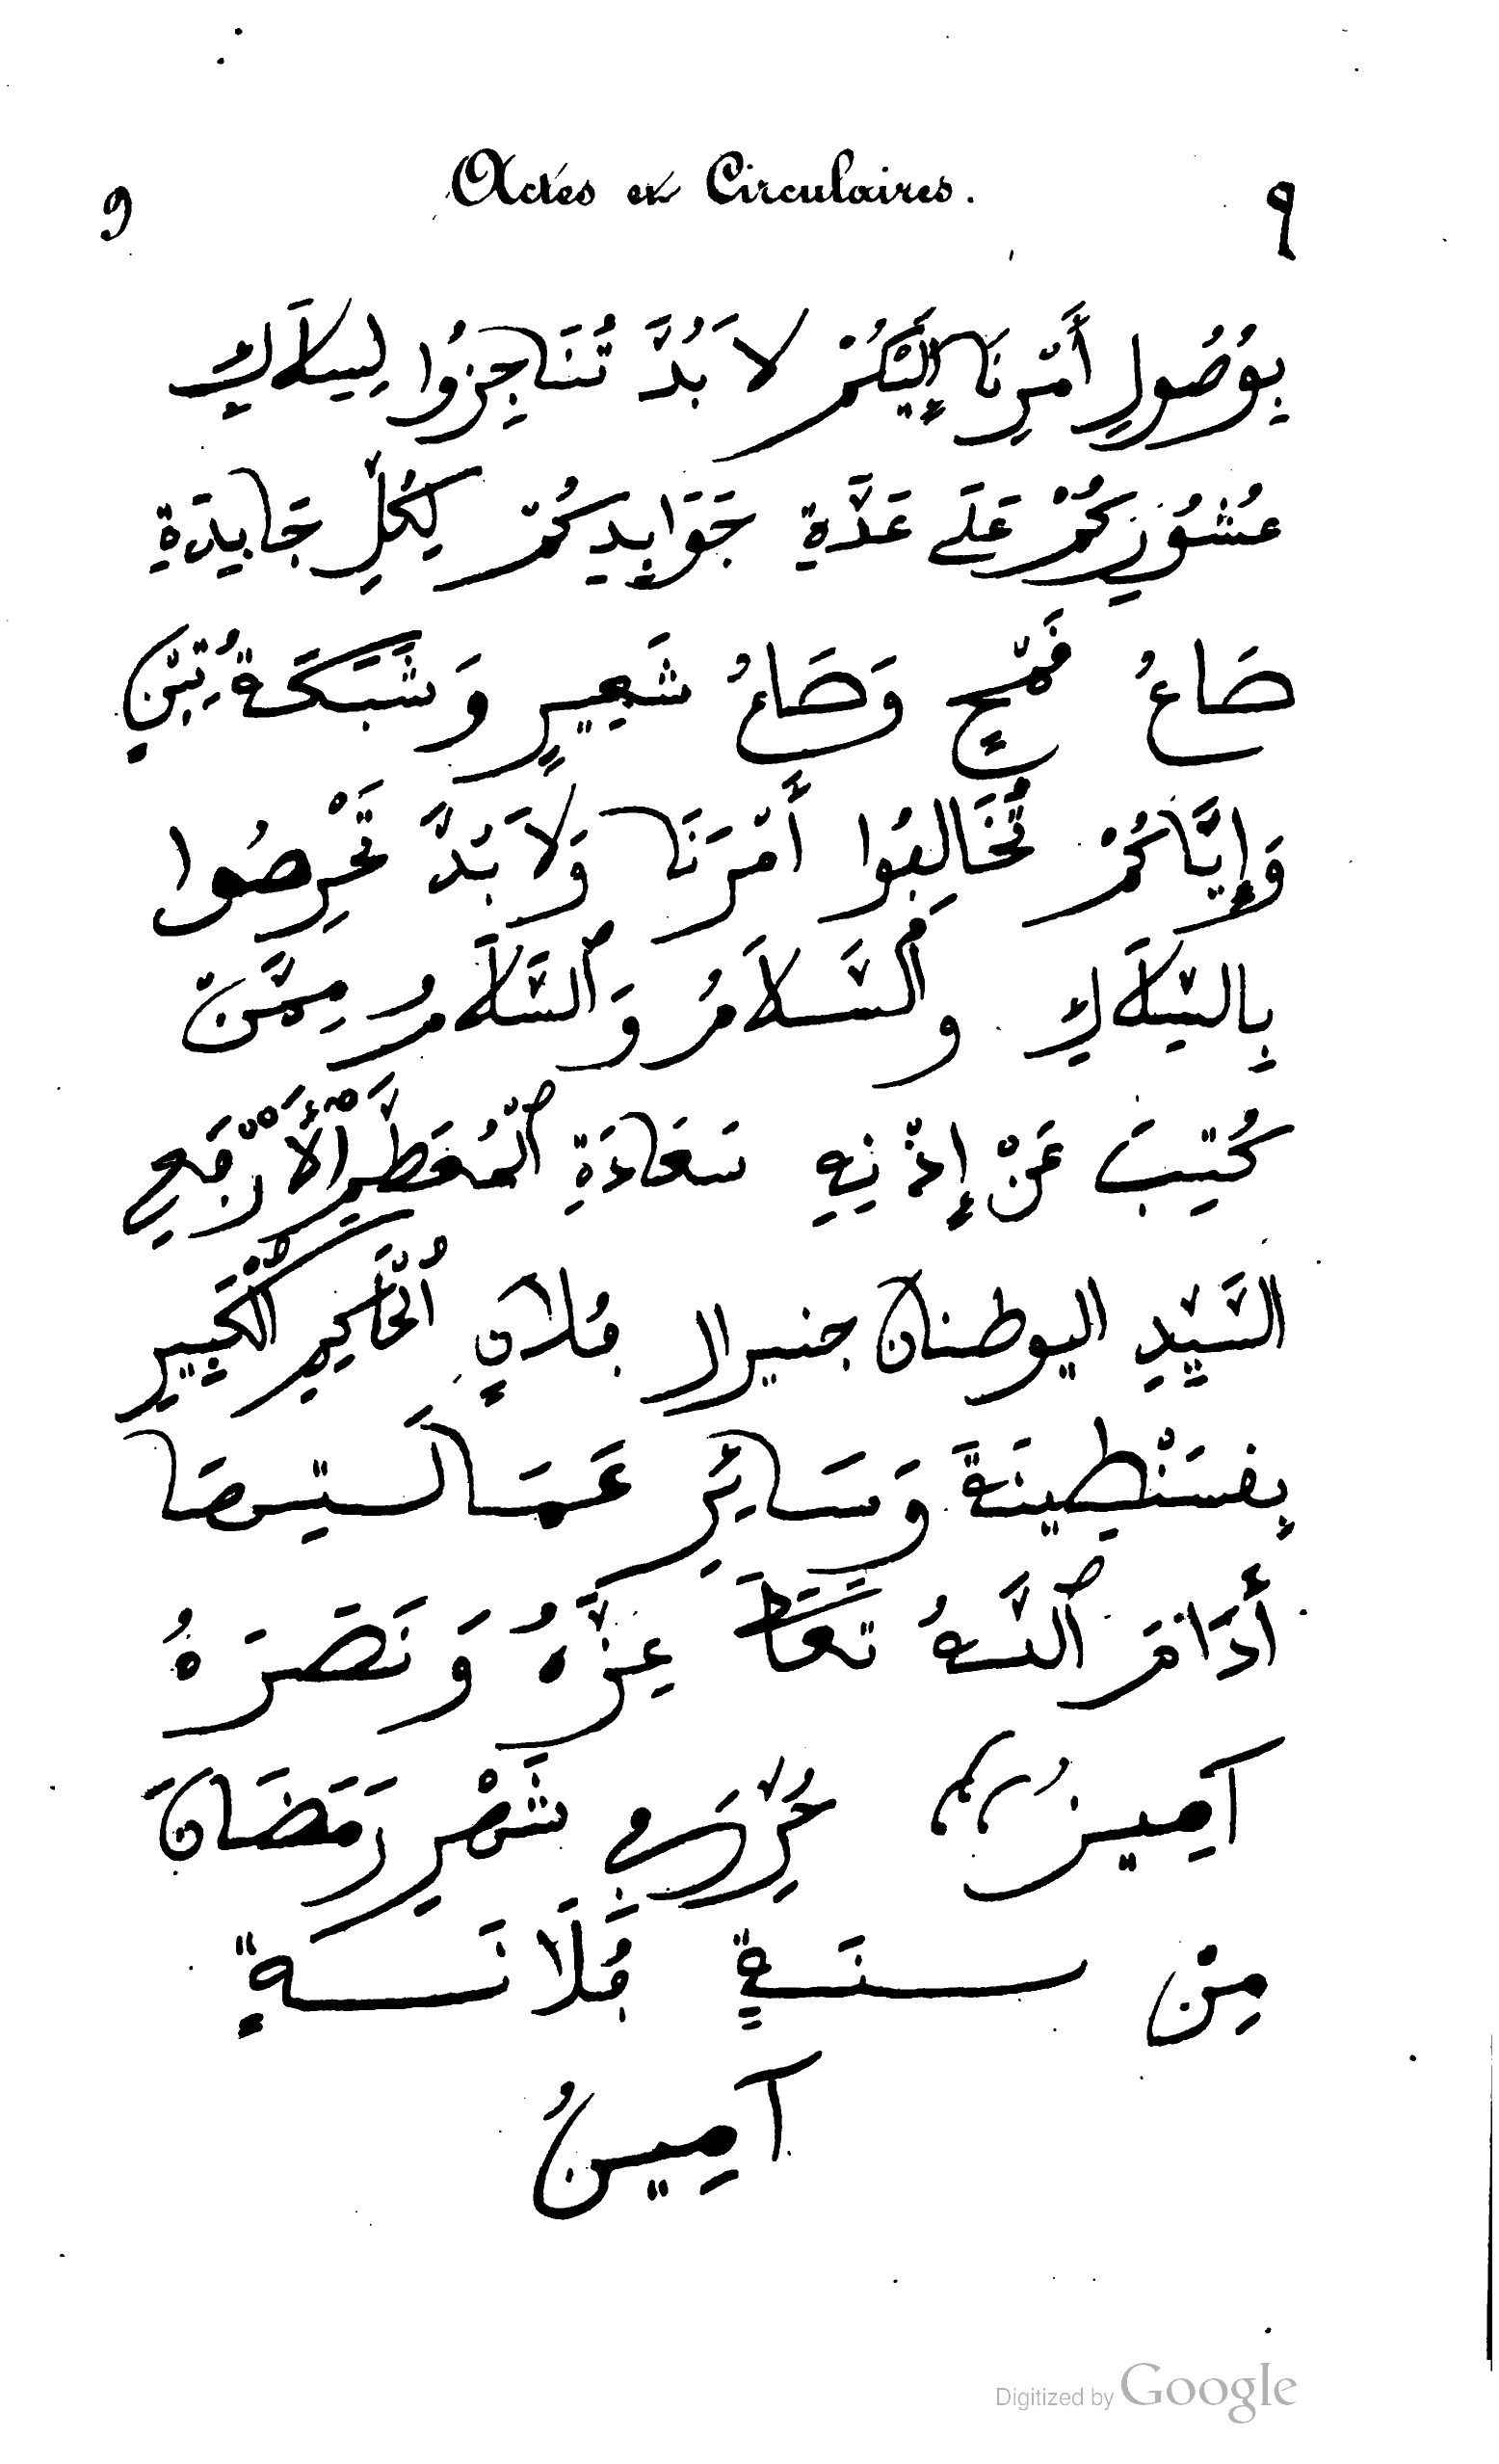 9 Actes et Circulaires. ٩
بِوُصُولِ أَمْرِنَا إِلَيْكُمْ لاَ بُدَّ تُنَاجِزُوا لِسِلَاكِ
عُشُورِكُمْ عَلَى عَدَّةِ جَوَابِدِكُمْ لِكُلِّ جَابِدَةِ
صَاعُ فَمْحٍ وَصَاعُ شَعِيرٍ وَشَبَكَةُ تِبْنٍ
وَإِيَّاكُمْ تُخَالِفُوا أَمْرَنَا وَلاَ بُدَّ تَحْرِصُوا
بِالسِّلاَكِ وَالسَّلاَمُ وَالسَّلاَمُ مِمَّنْ
كُتِبَ عَنْ إِذْنِهِ سَعَادَةِ ٱلْمُعَظَّمِ ٱلْأَرْفَعِ
السَّيِّدِ اليوطنان جنيرلا فُلاَنٍ الْحَاكِمِ الْكَبِيرِ
بِفسَنْطِينَةَ وَسَائِرِ عَمَالَـتِهَا
أَدَامَ ٱللَّهُ تَعَالَى عِزَّهُ وَنَصَرَهُ
آمِينْ حُرِّرَ فِي شَهْرِ رَمَضَانَ
مِنْ سَنَةٍ فُلاَنَـةٍ
آمِينْ
Digitized by Google